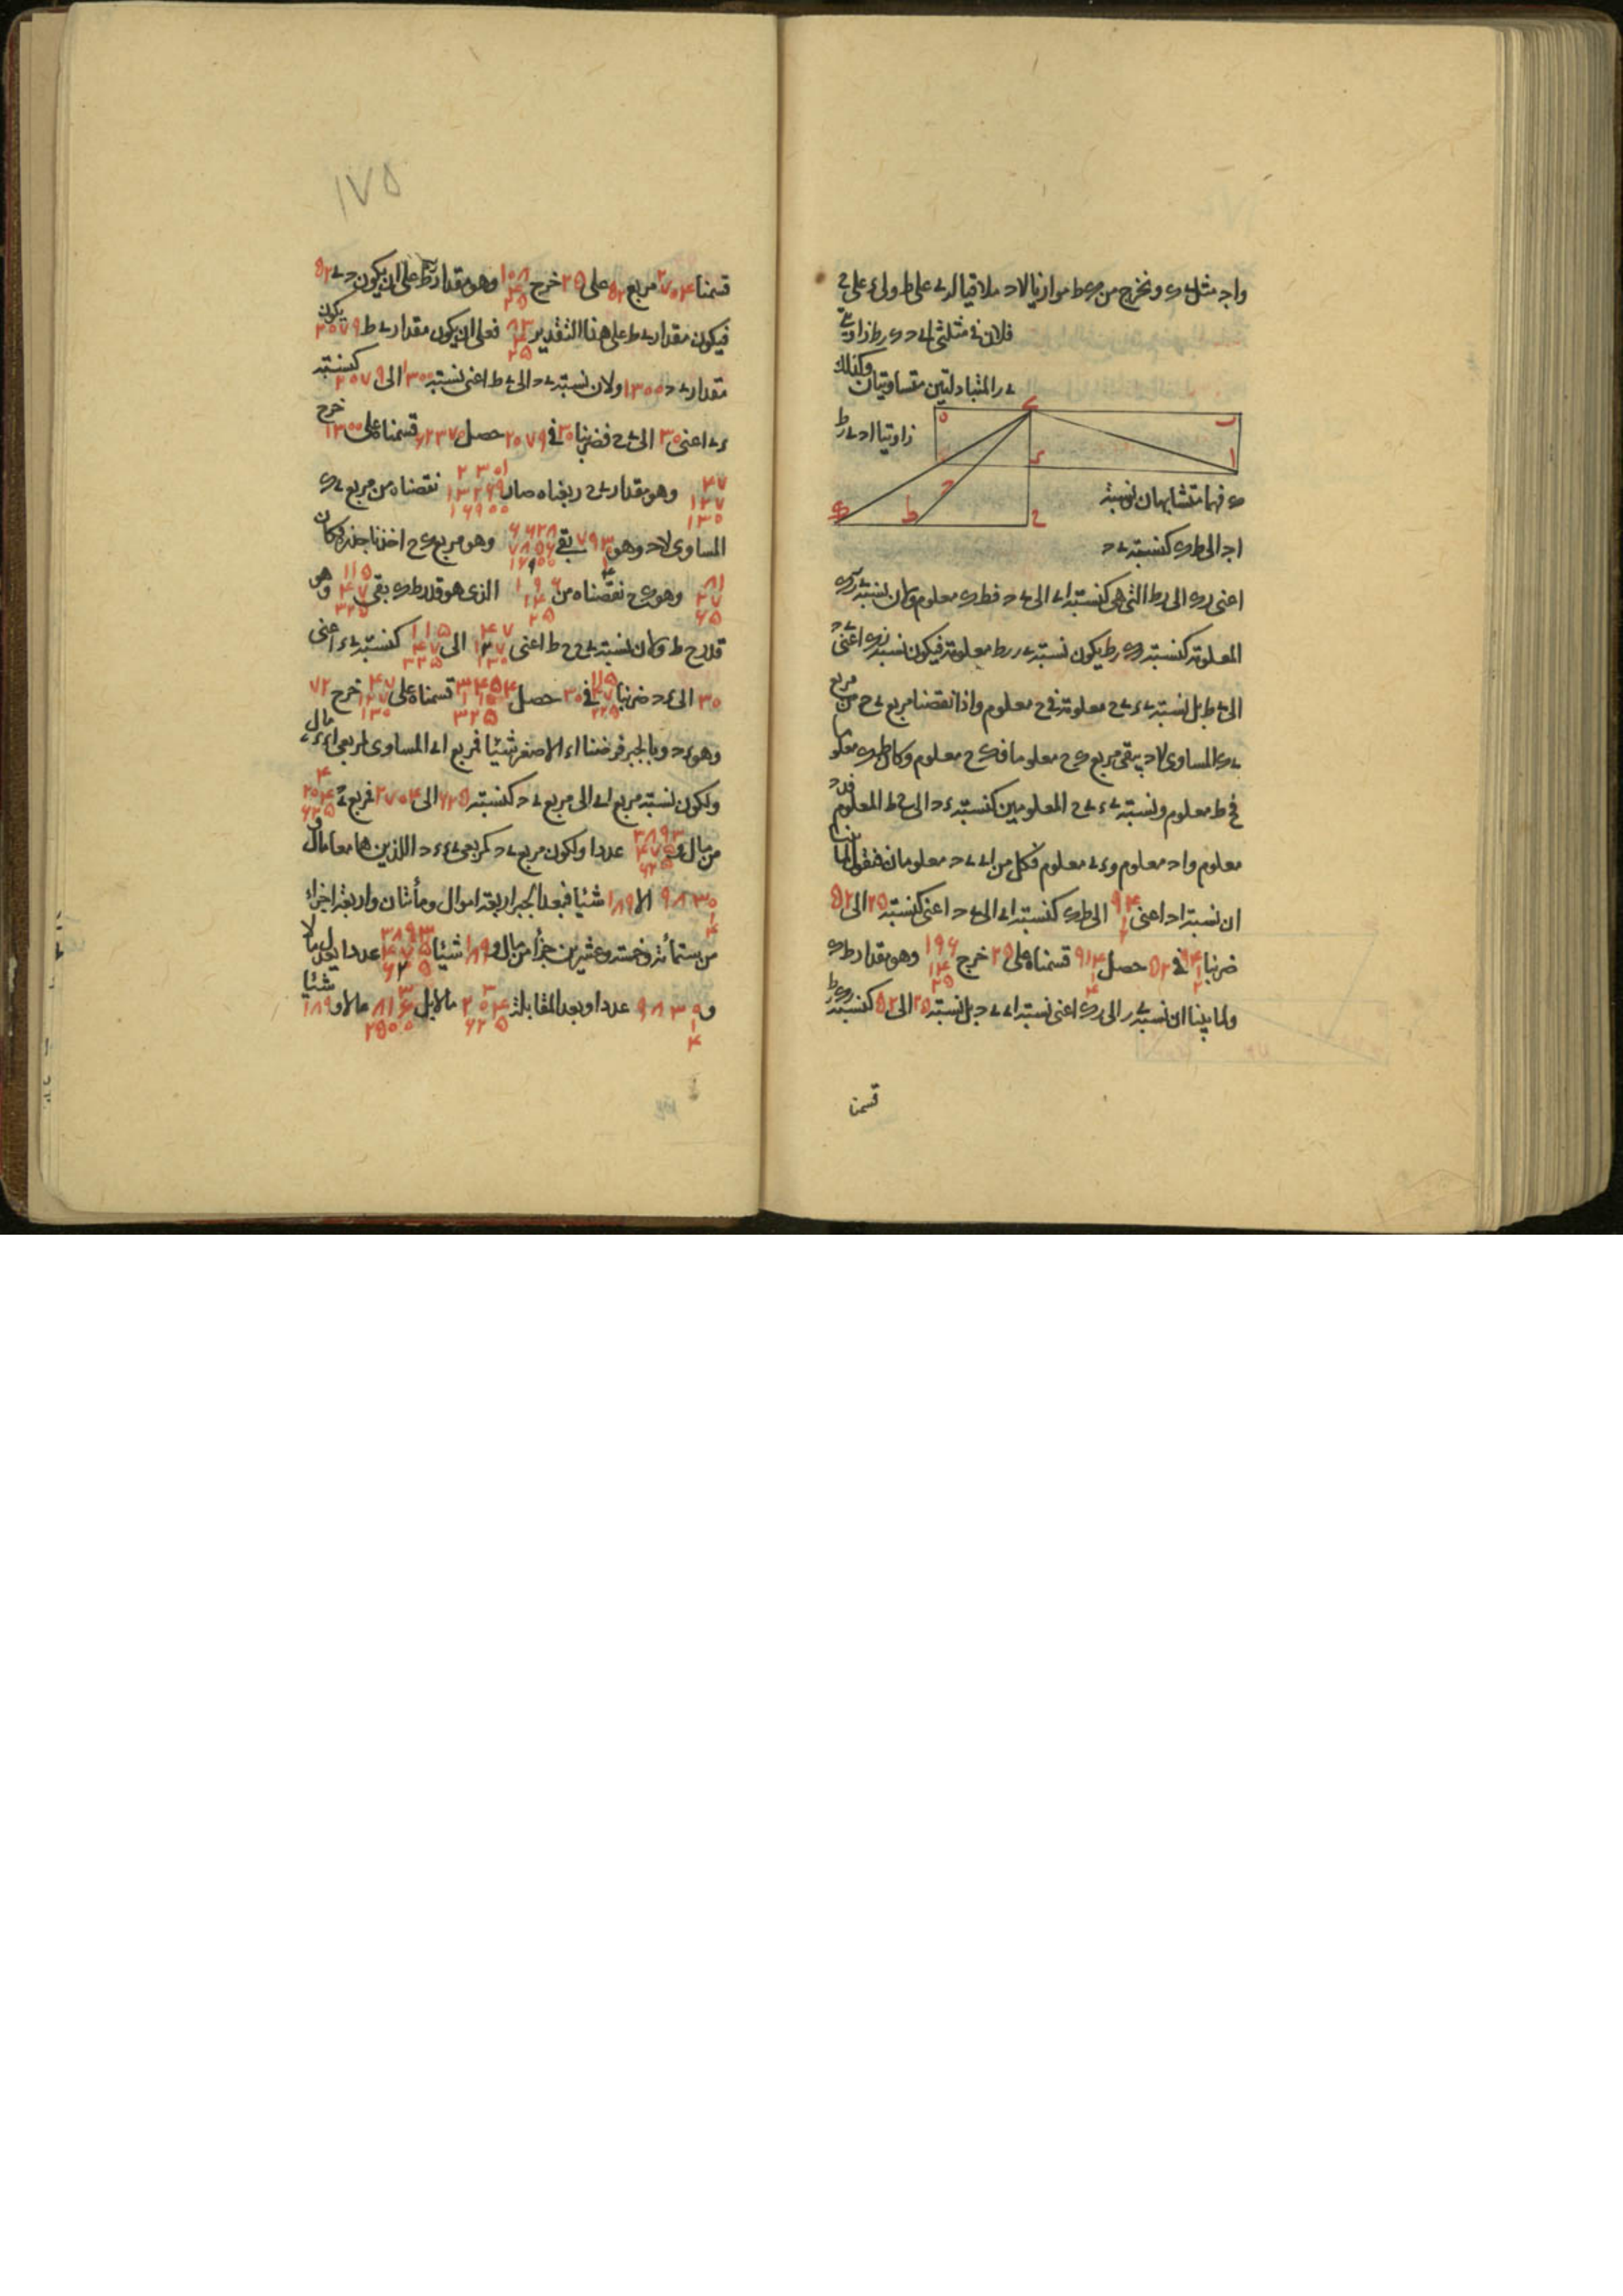 واحـ مثل ے ى ونخرج من ى ط موازيا لا د ملاقيا لد ے على ط ولے ء على ح
فلان فى مثلثى ا ے د ى ر ط زاويتى
ے ر المتبادلتين متساويتان وكذلك
زاويتا ا د ے ر ط
ى فهما متشابهان نسبة
ا د الى ط ى كنسبة ے د
اعنى ر ى الى ر ط التى هى كنسبة ا ے الى ے د فط ى معلوم وكان نسبة ے ر ى
المعلومة كنسبة ر ى ر ط يكون نسبة ے ر ر ط معلومة فيكون نسبة ر ى اعنى ے د
الى ے ط بل نسبة ے ء ے ح معلومة فے ح معلوم واذا نقصنا مربع ے ح من مربع
ے ى المساوى لا د يبقى مربع ى ح معلوما فى ح معلوم وكان ط ى معلوما
فح ط معلوم ونسبة ے ء ے ح المعلومين كنسبة ء د الى ح ط المعلوم فء د
معلوم وا د معلوم وء ے معلوم فكل من ا ے ے د معلومان فنقول
ان نسبة ا د اعنى ٩٤ ١ ٢ الى ط ى كنسبة ا ے الى ے د اعنى كنسبة ٢٥ الى ٥٢
ضربنا ٩٤ ١ ٢ فى ٥٢ حصل ٩١٤ قسمناه على ٢٥ خرج ١٩٦ ١٤ ٢٥ وهو مقدار ط ى
ولما بينا ان نسبة ے ر الى ر ى اعنى نسبة ا ے ے د بل نسبة ٢٥ الى ٥٢ كنسبة ر ى ر ط
قسمنا
١٧٥
قسمنا ٢٧٠٤ مربع ٥٢ على ٢٥ خرج ١٠٨ ٤ ٢٥ وهو مقدار ر ط على ان يكون ے د ٥٢
فيكون مقدار ے ط على هذا التقدير ٨٣ ٤ ٢٥ فعلى ان يكون مقدار ے ط ٢٠٧٩ يكون
مقدار ے د ١٣٠٠ ولان نسبة ے د الى ے ط اعنى نسبة ١٣٠٠ الى ٢٠٧٩ كنسبة
ء ے اعنى ٣٠ الى ے ح فضربنا ٣٠ فى ٢٠٧٩ حصل ٦٢٣٧٠ قسمناه على ١٣٠٠ خرج
٤٧ ١٢٧ ١٣٠ وهو مقدار ے ح ربعناه صار ٢٣٠١ ١٣٢٩٩ ١٦٩٠٠ نقصناه من مربع ے ى
المساوى لا د وهو بقى ٦٦٢٨ ٧٨٥٦ ١٦٩٠٠ وهو مربع ى ح اخذنا جذره فكان
٨١ ٢٧ ٦٥ وهو ى ح نقصناه من ١٩٦ ١٤ ٢٥ الذى هو قدر ط ى بقى ١١٥ ٤٧ ٣٢٥ وهو
قدر ح ط وكان نسبة ے ح ح ط اعنى ٤٧ ١٢٧ ١٣٠ الى ١١٥ ٤٧ ٣٢٥ كنسبة ے ء اعنى
٣٠ الى ء د ضربنا ١١٥ ٤٧ ٣٢٥ فى ٣٠ حصل ٣٤٥٤ ١١٠ ٣٢٥ قسمناه على ٤٧ ١٢٧ ١٣٠ خرج ٧٢
وهو ء د وبالجبر فرضنا ا ء الاصغر شيئا فمربع ا ے المساوى لمربعى ا ء ء ے مال
ولكون نسبة مربع ا ے الى مربع ے د كنسبة ٦٢٥ الى ٢٧٠٤ فمربع ے د ٤ ٢٠٤ ٦٢٥
من مال و ٣٨٩٣ ٤٧٥ ٦٢٥ عددا ولكون مربع ے د كمربعى ے ء ء د اللذين هما معا مال
٩٨٣٠ ١ ٤ الا ١٨٩ شيئا فبعد الجبر اربعة اموال ومأتان واربعة اجزاء
من ستمائة وخمسة وعشرين جزأ من مال و ١٨٩ شيئا ٣٨٩٣ ٤٧٥ ٦٢٥ عددا يعدل مالا
و ٩٨٣٠ ١ ٤ عددا وبعد المقابلة ٣ ٢٠٤ ٦٢٥ مالا بل ٣ ٨١٦ ٢٥٠٠ مالا و ١٨٩ شيئا